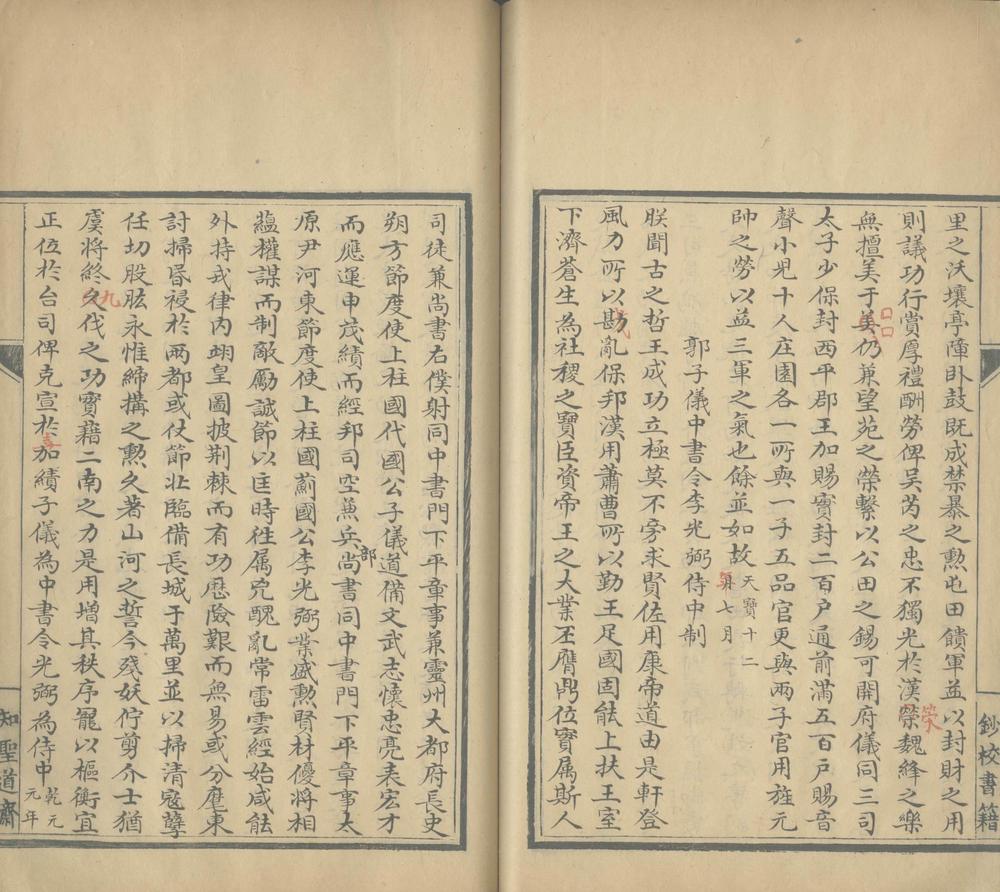 里之沃壤亭障卧鼓既成禁暴之勲屯田饋軍並以封財之用
則議功行賞厚禮酬勞俾吴芮之忠不獨光於漢榮魏絳之樂
榮
無擅美于羙仍兼望苑之榮繫以公田之錫可開府儀同三司
口口
太子少保封西平郡王加賜實封二百户通前滿五百户賜音
聲小児十人庄園各一所與一子五品官更與兩子官用旌元
帥之勞以益三軍之氣也餘並如故
天寶十二
年七月
郭子儀中書令李光弼侍中制
朕聞古之哲王成功立極莫不旁求賢佐用康帝道由是軒登
風力所以勘亂保邦漢用蕭曹所以勤王足國固能上扶王室
下濟蒼生為社稷之寶臣資帝王之大業丕膺鼎位實属斯人
鈔校書籍
司徒兼尚書右僕射同中書門下平章事兼靈州大都府長史
朔方節度使上柱國代國公子儀道備文武志懷忠亮秉宏才
而應運申茂績而經邦司空兼兵尚書同中書門下平章事太
部
原尹河東節度使上柱國薊國公李光弼業盛勲賢材優將相
蘊權謀而制敵勵誠節以匡時徃属兇醜亂常雷雲經始咸能
外持戎律内翊皇圖披荆棘而有功歴險艱而無易或分麾東
討掃昬祲於兩都或仗節北臨備長城于萬里並以掃清寇孽
任切股肱永惟締搆之勲久著山河之誓今殘妖佇剪介士猶
虞將終久伐之功實藉二南之力是用增其秩序寵以樞衡宜
九
正位於台司俾克宣於加績子儀為中書令光弼為侍中
乾元
元年
知聖道齋